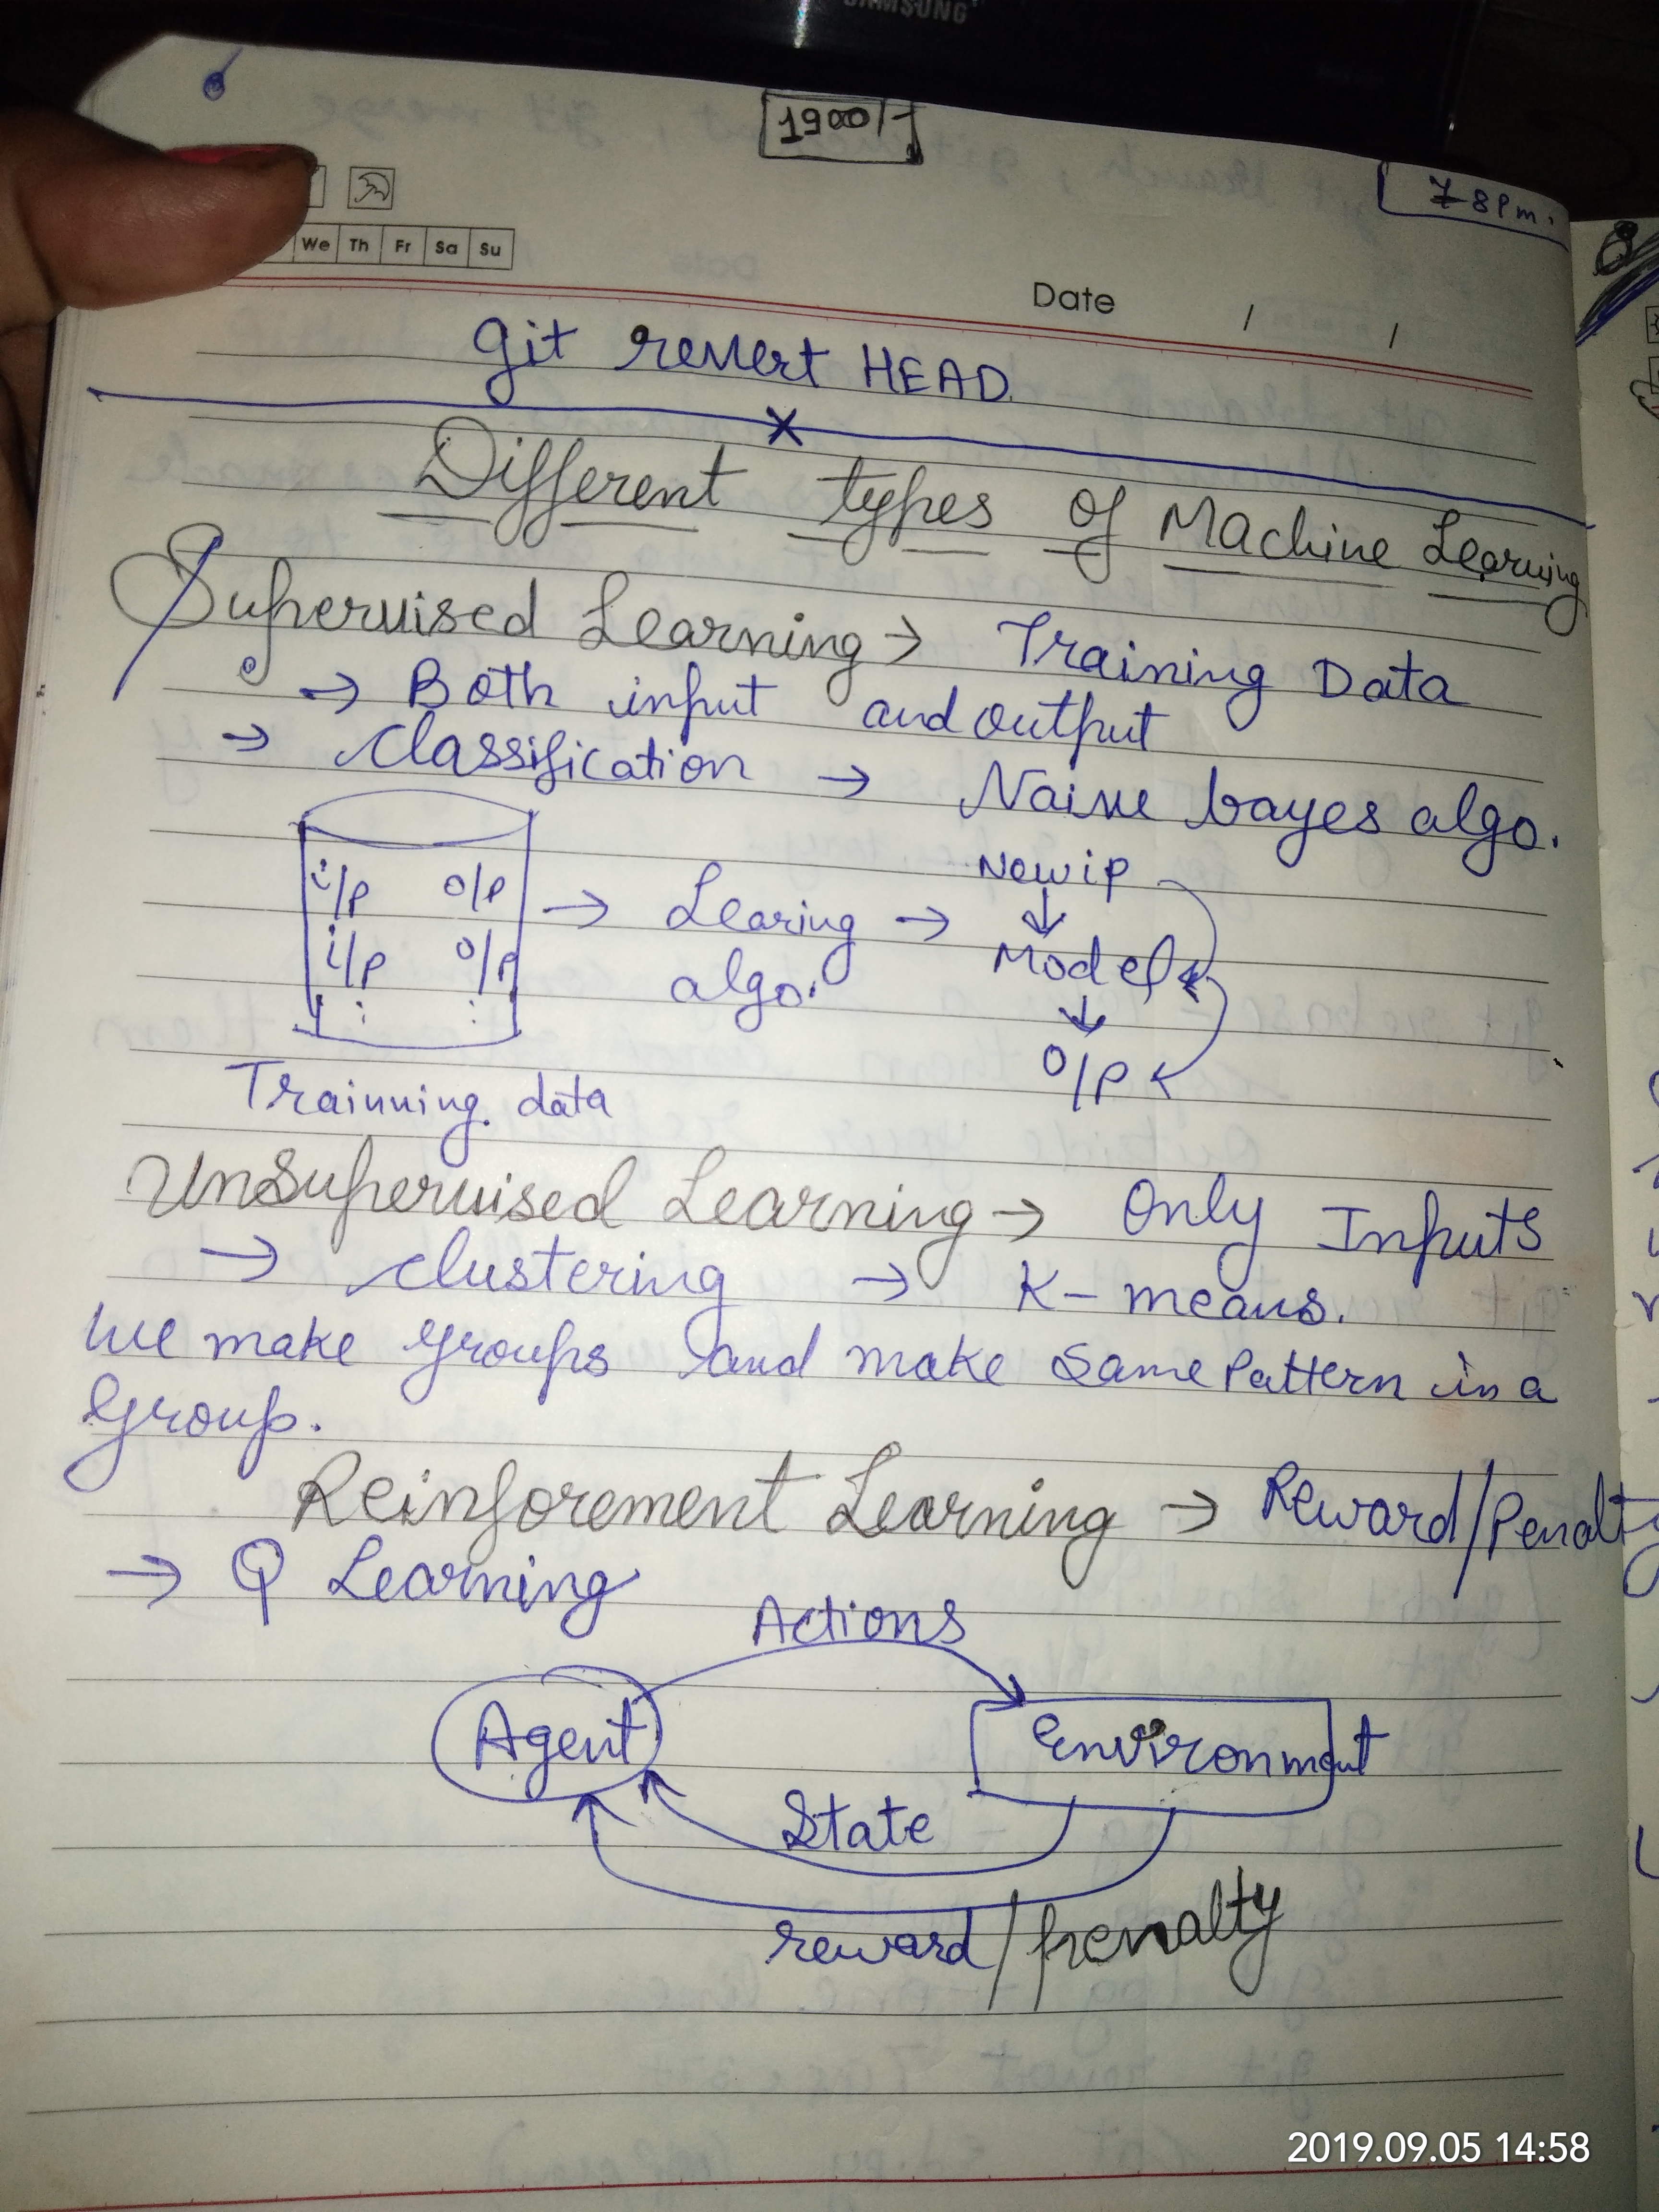 SAMSUNG
1900/-
7-8Pm.
We Th Fr Sa Su
Date / /
git revert HEAD
X
Different types of Machine Learning
Supervised Learning → Training Data
→ Both input and output
→ classification → Naive bayes algo.
i/p o/p → Learing algo. → New ip
i/p o/p ↓
: : Model
↓
o/p
Trainning data
Unsupervised Learning → Only Inputs
→ clustering → K-means.
we make groups and make same pattern in a
group.
Reinforement Learning → Reward/Penalty
→ Q Learning
Actions
Agent Environment
State
reward/penalty
2019.09.05 14:58